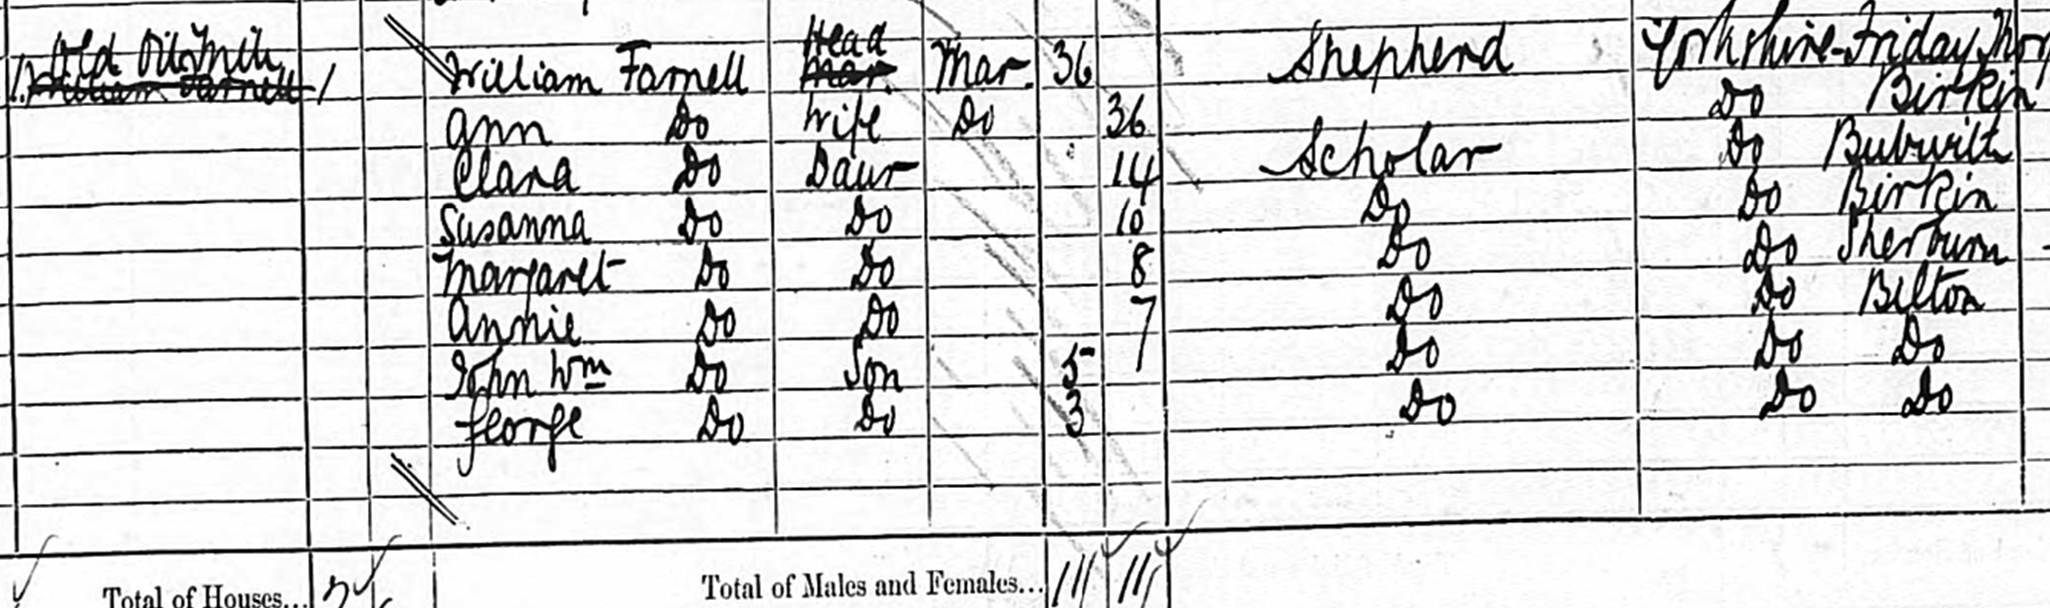 Old Oil Mill
William Farnell 1 William Farnell Head Mar. 36 Shepherd Yorkshire - Friday Thorp
Ann Do Wife Do 36 Do Birkin
Clara Do Daur 14 Scholar Do Bubwith
Susanna Do Do 10 Do Do Birkin
Margaret Do Do 8 Do Do Sherburn
Annie Do Do 7 Do Do Bilton
John Wm Do Son 5 Do Do Do
George Do Do 3 Do Do Do
Total of Houses... Total of Males and Females... 11 11